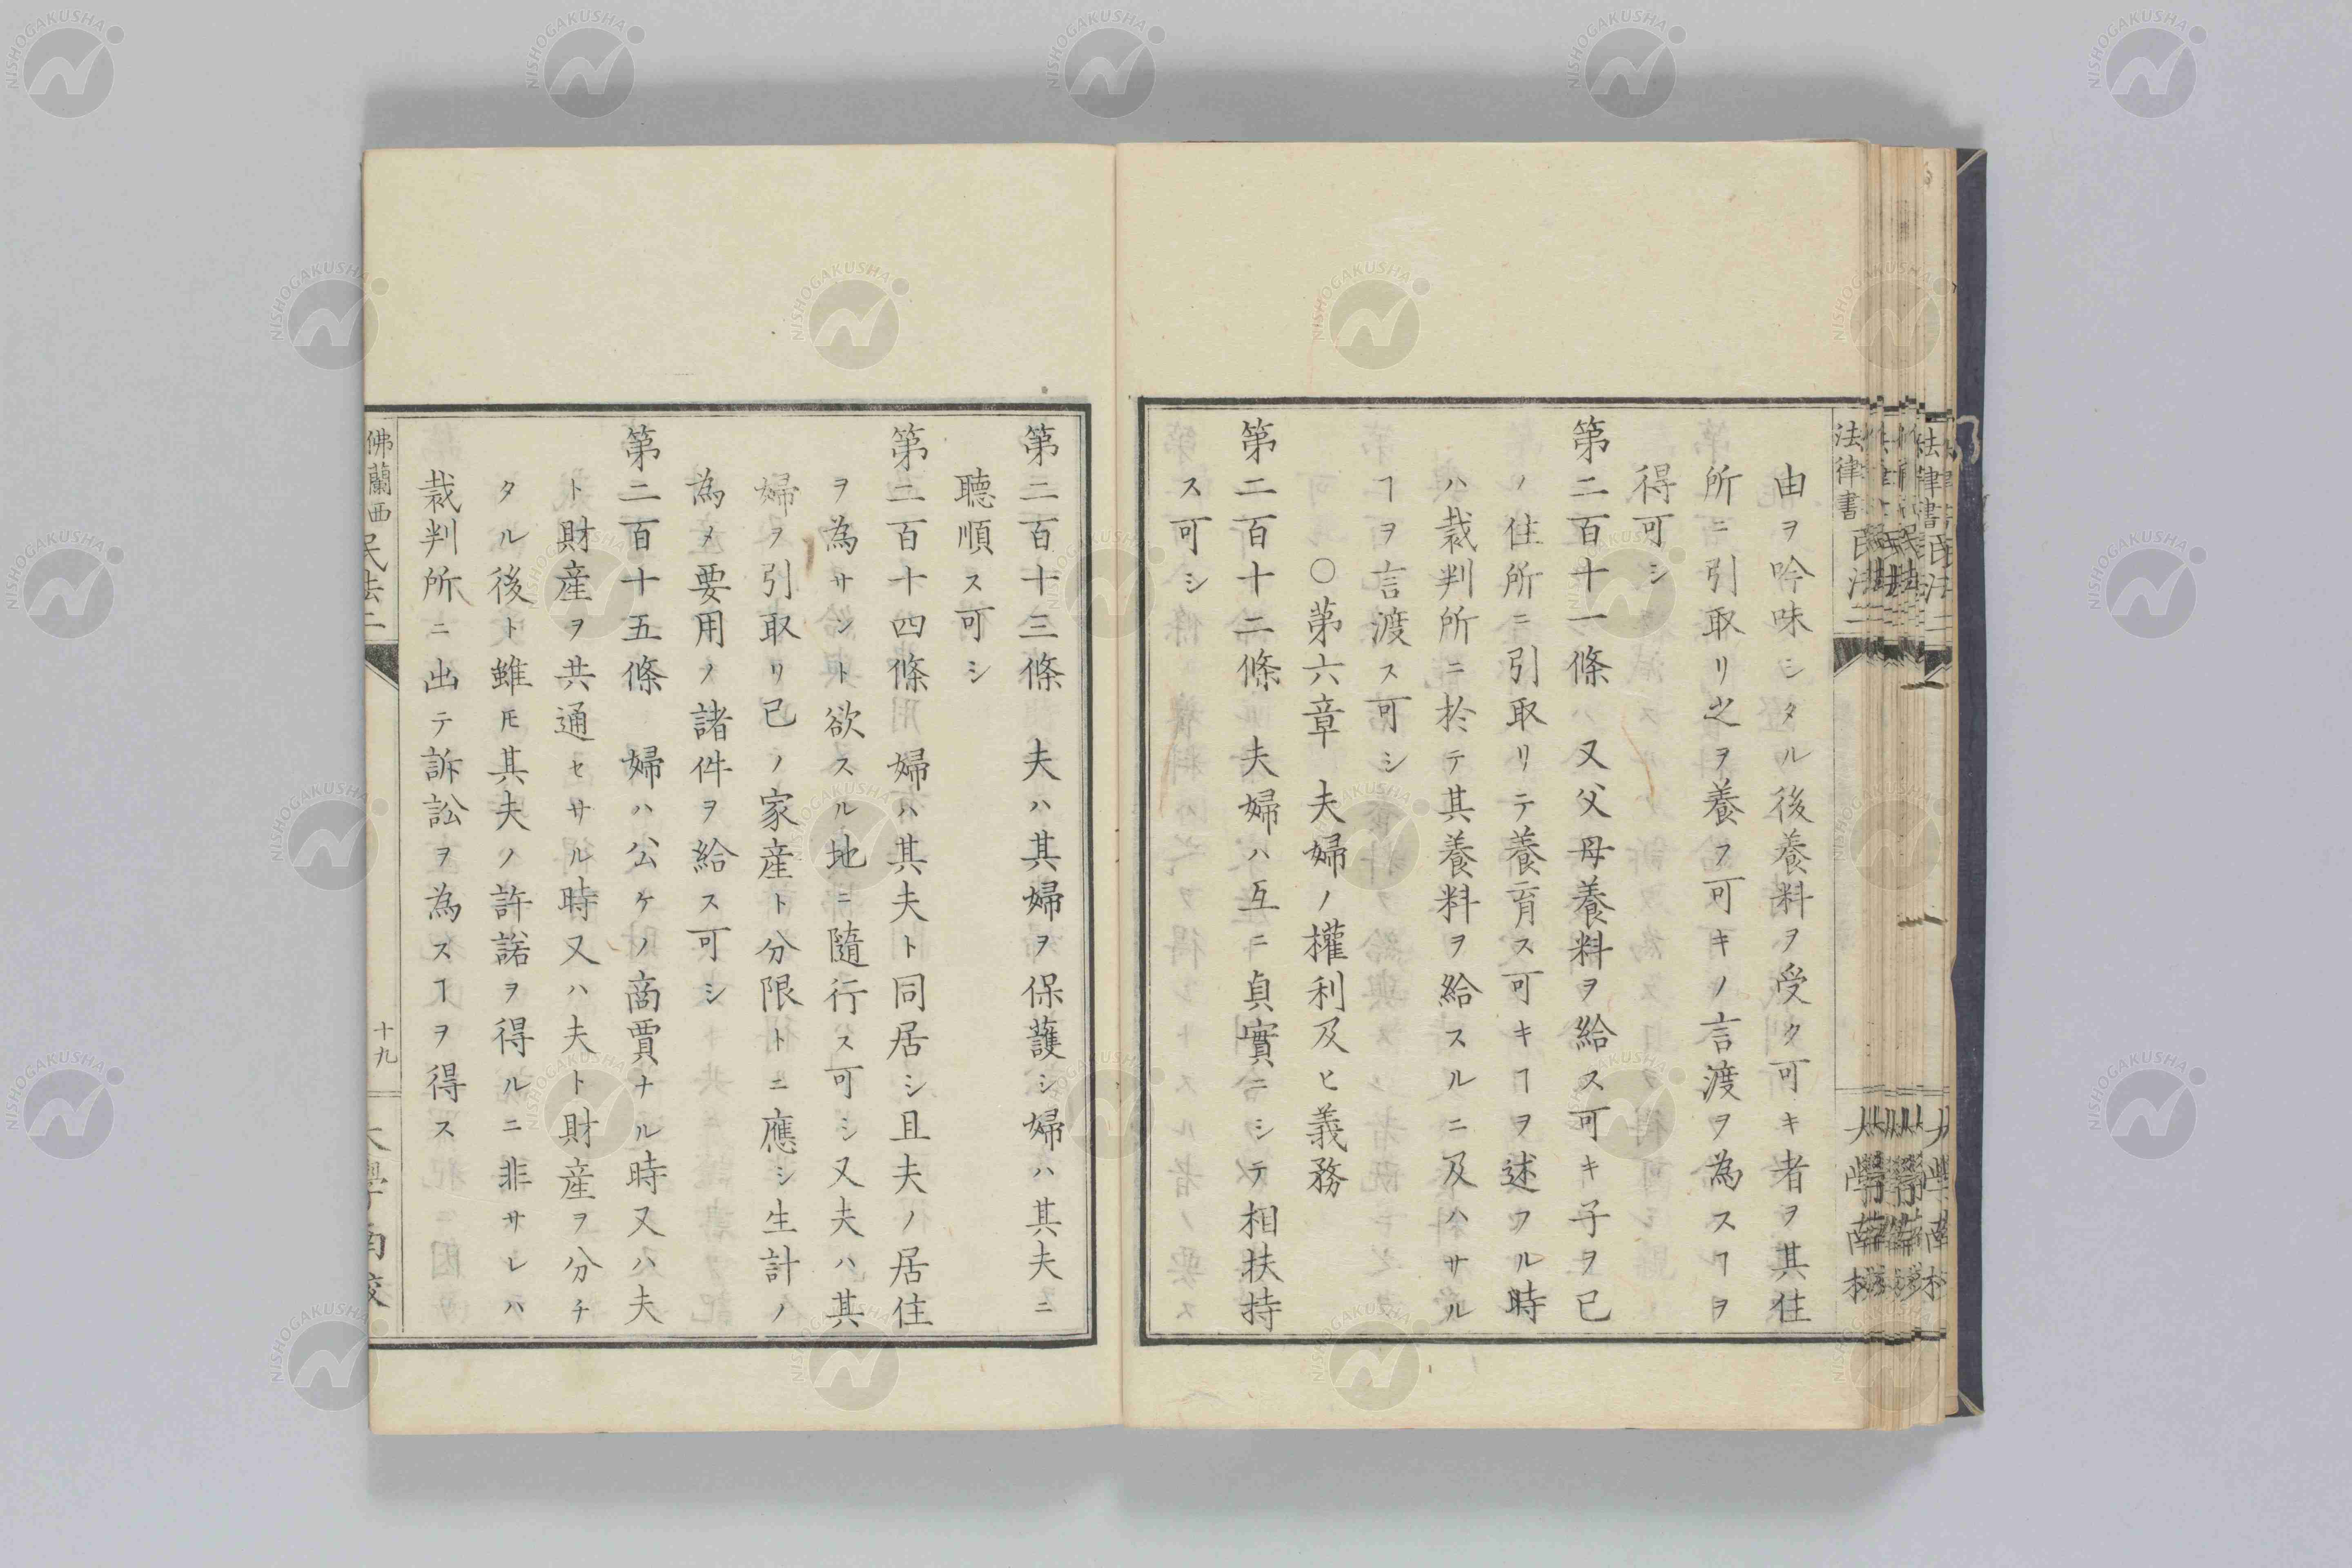 由ヲ吟味シタル後養料ヲ受ク可キ者ヲ其住
所ニ引取リ之ヲ養フ可キノ言渡ヲ為スヿヲ
得可シ
第二百十一條 又父母養料ヲ給ス可キ子ヲ已
ノ住所ニ引取リテ養育ス可キヿヲ述フル時
ハ裁判所ニ於テ其養料ヲ給スルニ及ハサル
ヿヲ言渡ス可シ
○第六章 夫婦ノ權利及ヒ義務
第二百十二條 夫婦ハ互ニ貞實ニシテ相扶持
ス可シ
第二百十三條 夫ハ其婦ヲ保護シ婦ハ其夫ニ
聽順ス可シ
第二百十四條 婦ハ其夫ト同居シ且夫ノ居住
ヲ為サント欲スル地ニ隨行ス可シ又夫ハ其
婦ヲ引取リ已ノ家産ト分限トニ應シ生計ノ
為メ要用ノ諸件ヲ給ス可シ
第二百十五條 婦ハ公ケノ商賈ナル時又ハ夫
ト財産ヲ共通セサル時又ハ夫ト財産ヲ分チ
タル後ト雖𪜈其夫ノ許諾ヲ得ルニ非サレハ
裁判所ニ出テ訴訟ヲ為スヿヲ得ス
佛蘭西民法二
十九
大學南校
法律書民法二
大學南校
NISHOGAKUSHA